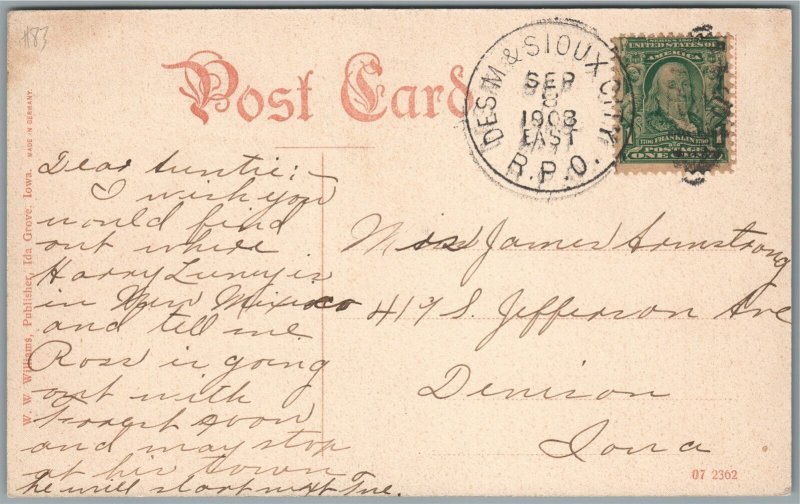 183
Post Card
DES M. & SIOUX CITY
SEP
8
1908
EAST
R.P.O.
SERIES 1902
UNITED STATES OF
AMERICA
1706 FRANKLIN 1790
POSTAGE
ONE CENT
MADE IN GERMANY.
W. W. Williams, Publisher, Ida Grove, Iowa.
Dear Auntie:-
I wish you
would find
out where
Harry Luney is
in New Mexico
and tell me
Ross is going
out with
Forrest soon
and may stop
at his town
he will start next Tue.
Miss James Armstrong
417 S. Jefferson Ave
Denison
Iowa
07 2362